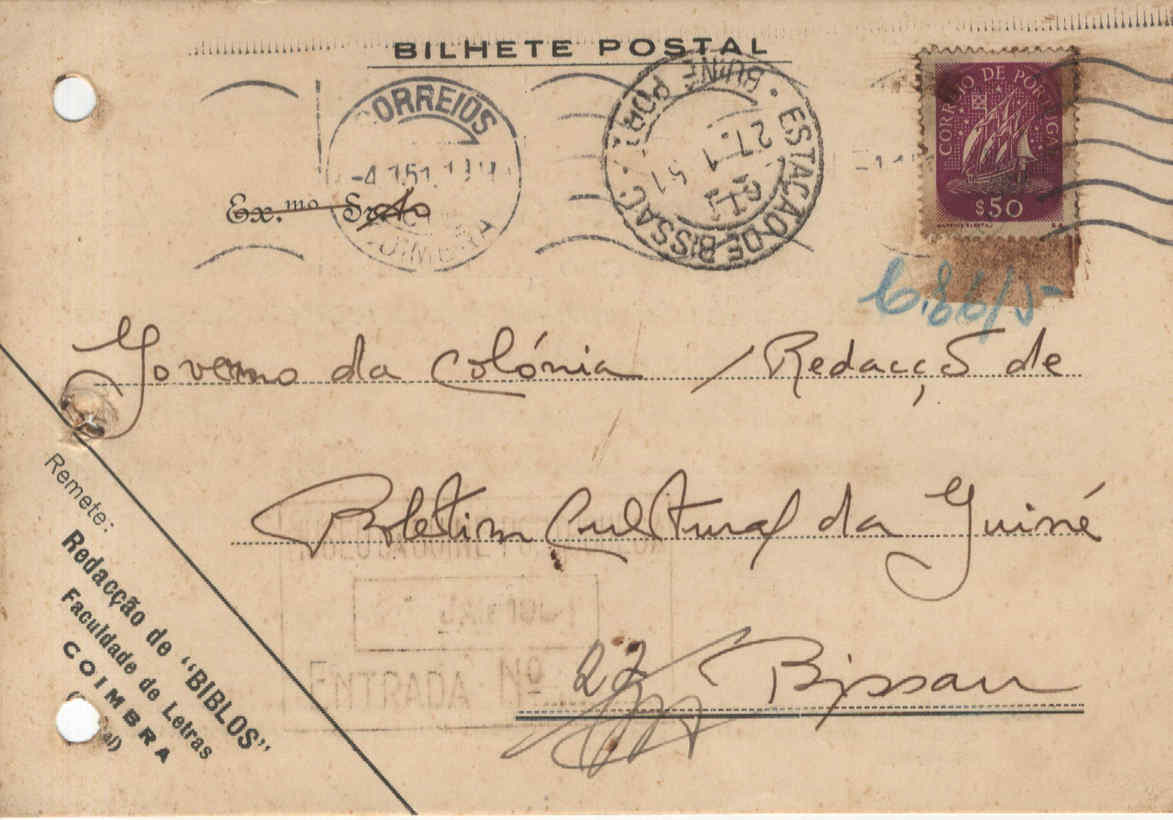 BILHETE POSTAL
CORREIOS
-4.1.51.
COIMBRA
ESTAÇÃO DE BISSAU
27. 1
51
CORREIO DE PORTUGAL
$50
Ex.mo Sr.
Governo da Colónia / Redacção de
Boletim Cultural da Guiné
Bissau
ENTRADA Nº
Remete:
Redacção de "BIBLOS"
Faculdade de Letras
COIMBRA